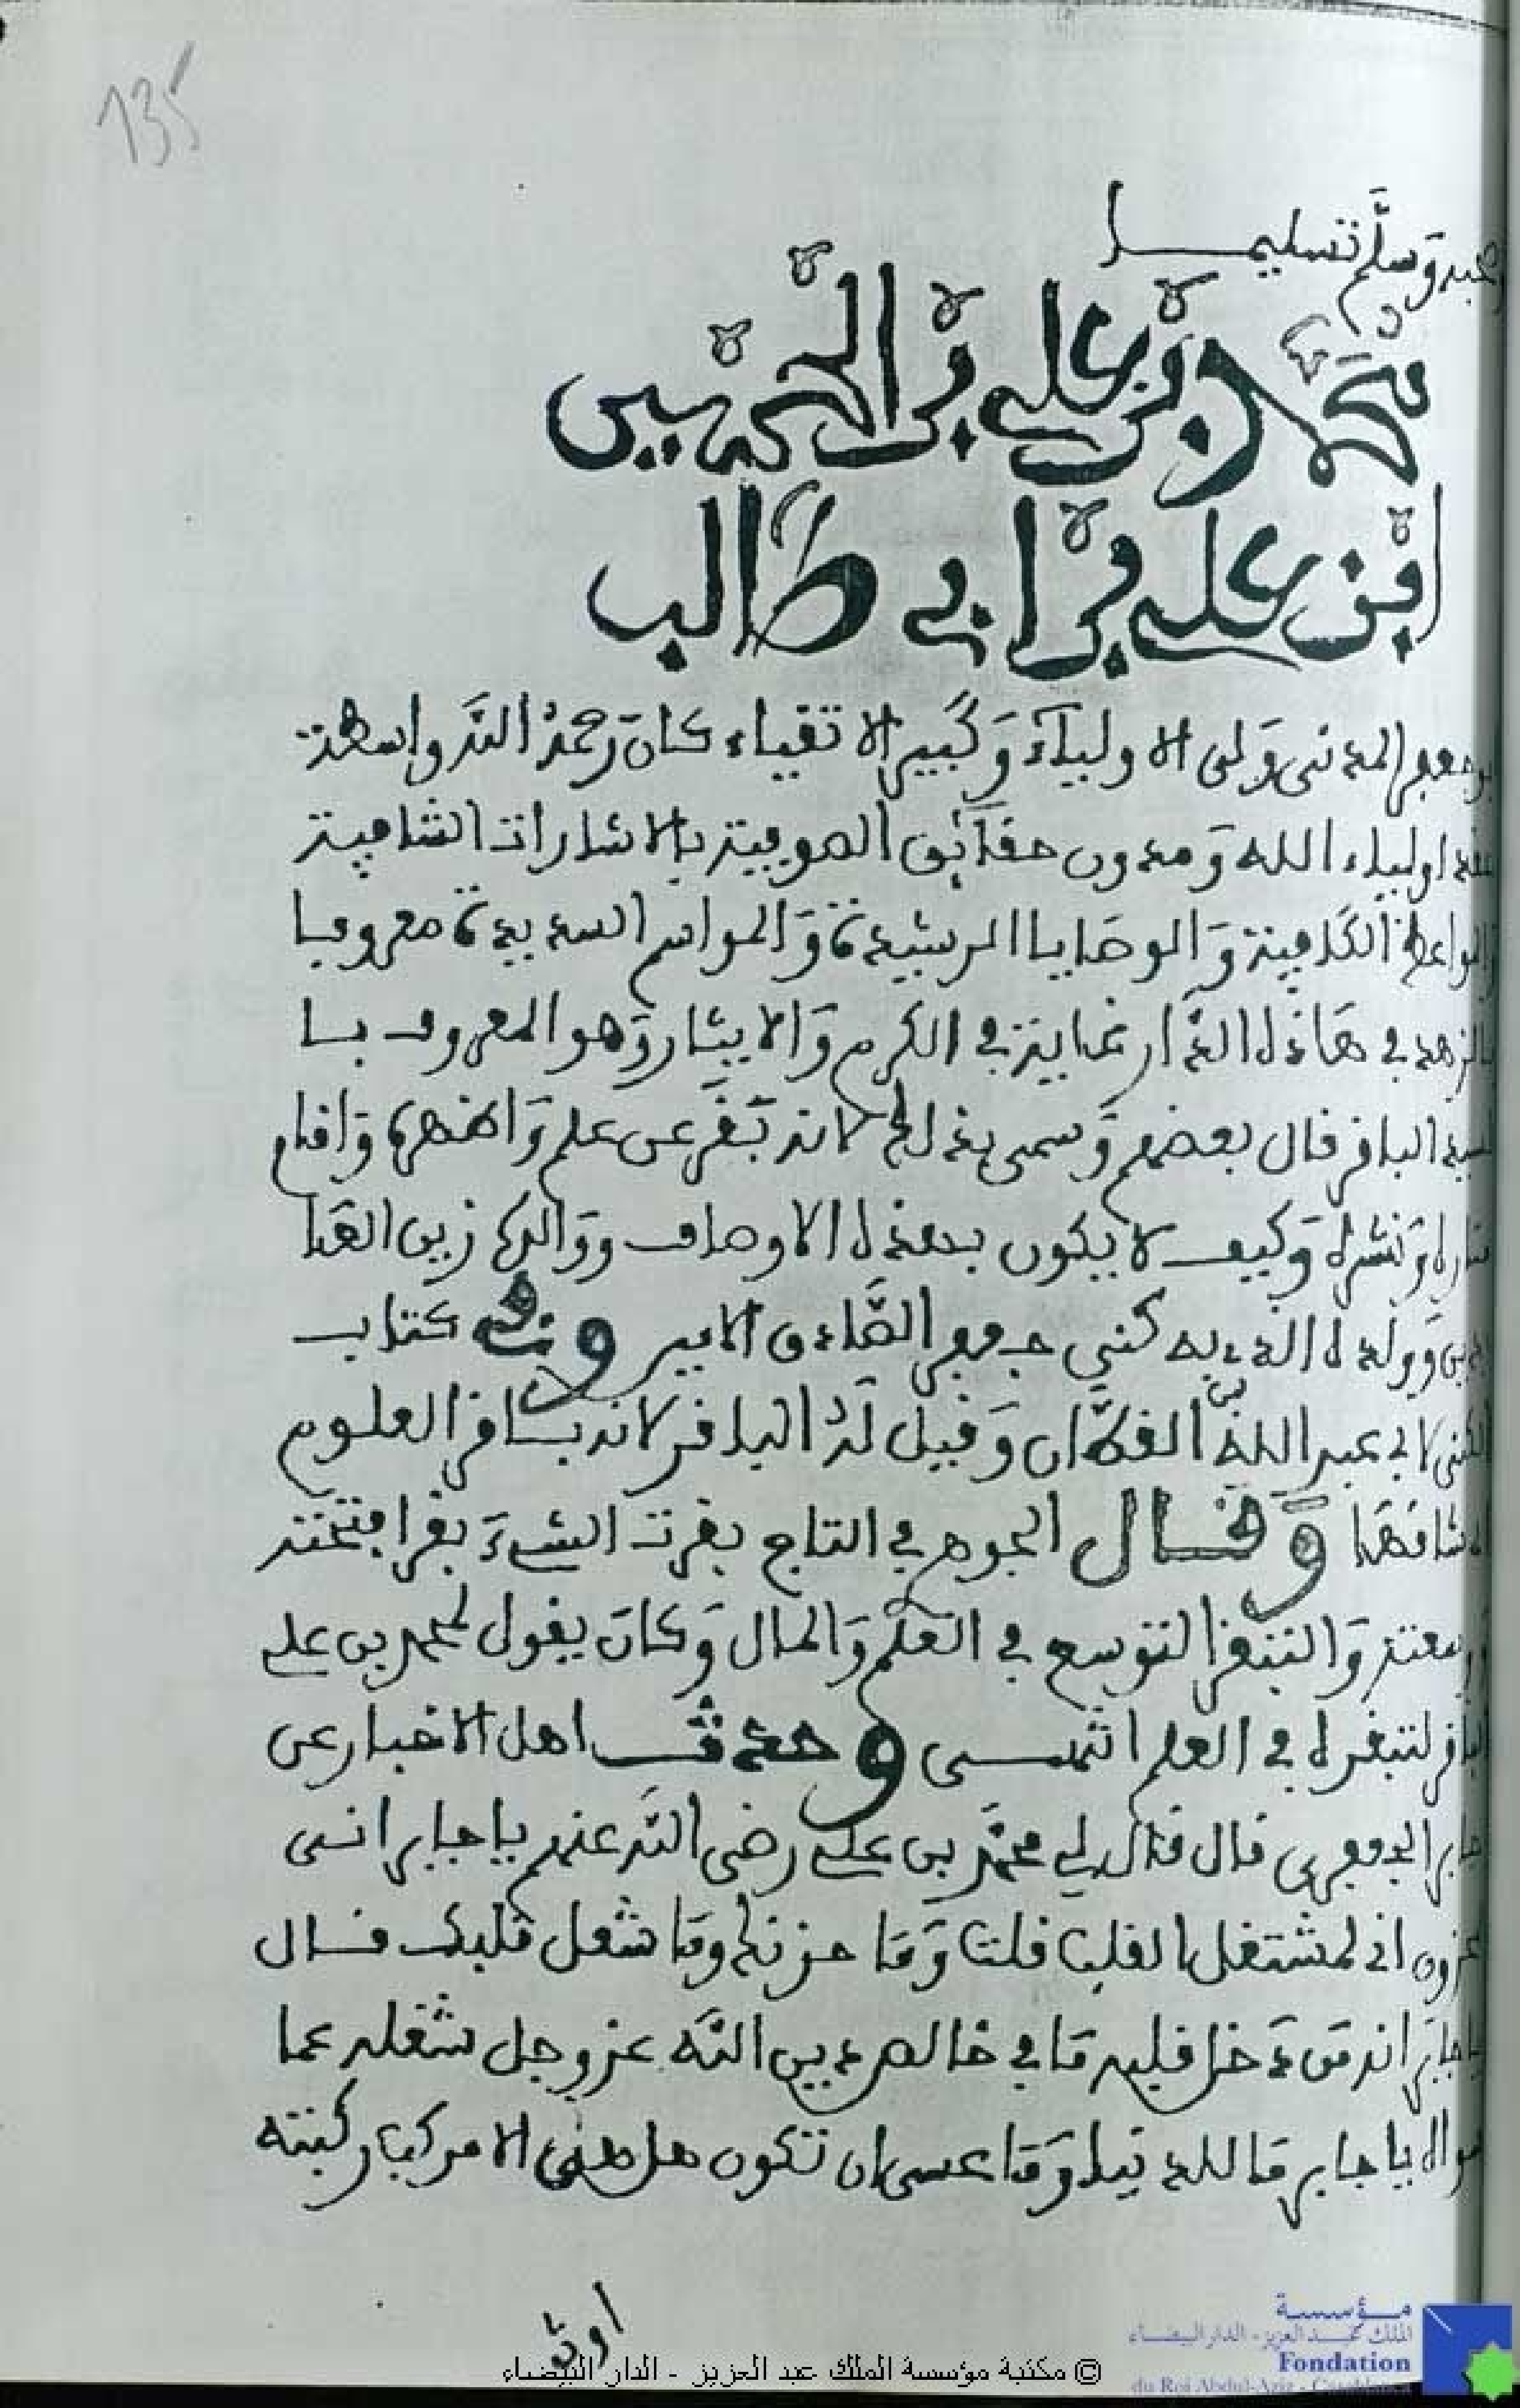 135
وسلم تسليما
محمد بن علي بن الحسين
ابن علي بن ابي طالب
المدني ولي الاولياء وكبير الاتقياء كان رحمه الله واسطة
اولياء الله ومعدن حقائق الصوفية بالاشارات الشافية
الكافية والوصايا الرشيدة والمواسم السديدة معروفا
بالزهد في هاذه الدار غاية في الكرم والايثار وهو المعروف بسا
الباقر قال بعضهم وسمي بذلك لانه تبقر عن علم واظهره وافاء
ونشره وكيف لا يكون بهذه الاوصاف ووالده زين العا
وولده الذي به كني جعفر الصادق الابير وفي كتاب
لابي عبد الله الفلاان وقيل له الباقر لانه بساقر العلوم
وقال الجوهري في التاج بقرت الشيء بقرا فتحته
والتبقر التوسع في العلم والمال وكان يقول لمحمد بن علي
لتبقره في العلم انتهى وحدث اهل الاخبار عن
الجعفري قال قال لي محمد بن علي رضي الله عنهم يا جابر انى
اني لمشتغل القلب قلت وما حزنك وما شغل قلبك قال
انه من دخل قلبه ما في خالص دين الله عز وجل شغله عما
يا جابر ما للدنيا وما عسى ان تكون هل هي الا مركب ركبته
اوث
© مكتبة مؤسسة الملك عبد العزيز - الدار البيضاء
مؤسسة
الملك عبد العزيز - الدار البيضاء
Fondation
du Roi Abdul-Aziz - Casablanca